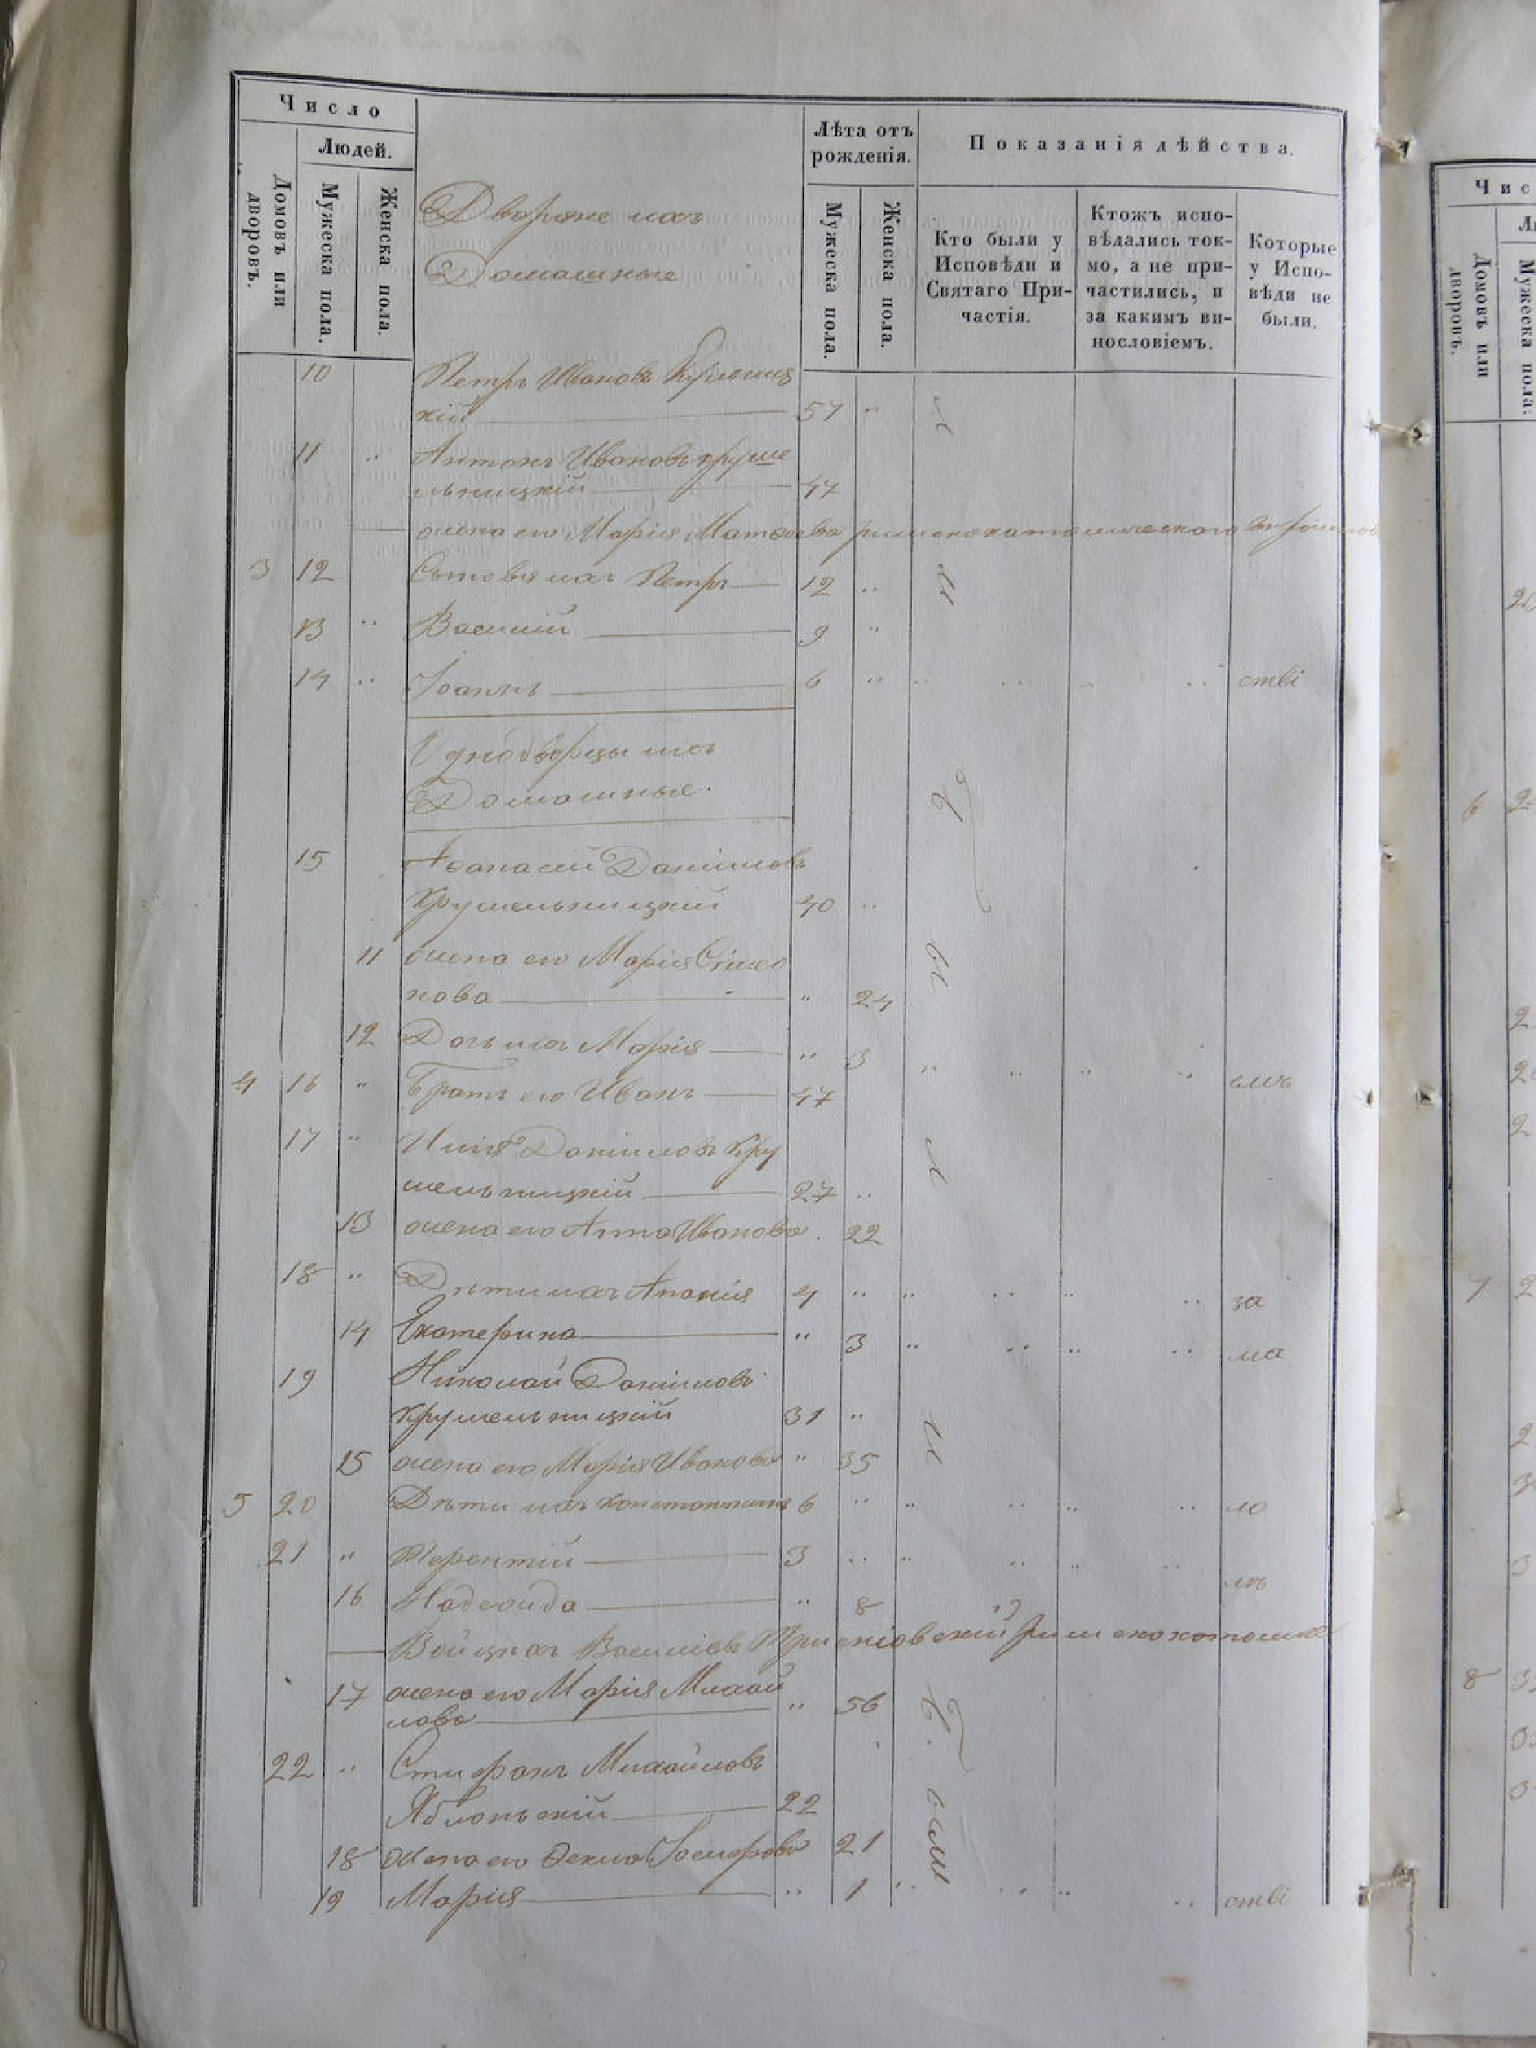 Число
Людей.
Домовъ или дворовъ.
Мужеска пола.
Женска пола.
Лѣта отъ рожденія.
Мужеска пола.
Женска пола.
Показанія дѣйства.
Кто были у Исповѣди и Святаго Причастія.
Ктожъ исповѣдались токмо, а не причастились, и за какимъ винословіемъ.
Которые у Исповѣди не были.
Дворяне ихъ
Домашные
10 Петръ Ивановъ
кій 57 "
11 " Антонъ Ивановъ Круше
льницкій 47
жена его Марія Матѳіева римскокатолическаго
3 12 Сыновья ихъ Петръ 12 "
13 " Василій 9 "
14 " Іоаннъ 6 " " " " " стві
Однодворцы ихъ
Домашные.
15 Аѳанасій Даніиловъ
Крушельницкій 40 "
11 жена его Марія Сімео
нова " 24
12 Дочь ихъ Марія " 3 " " " " емъ
4 16 " Братъ его Иванъ 47
17 " Илія Даніиловъ Кру
шельницкій 27 "
13 жена его Анна Иванова . 22
18 " Дѣти ихъ Ананія 4 " " " " " за
14 Екатерина " 3 " " " " ма
19 Николай Даніиловъ
Крушельницкій 31 "
15 жена его Марія Иванова " 35
5 20 Дѣти ихъ Константинъ 6 " " " " " ло
21 " Терентій 3 " " " " "
16 Надежда " 8 лѣ
Войцехъ Василіевъ
17 жена его Марія Михай
лова " 56
22 " Стефанъ Михайловъ
Яблонскій 22
18 Жена его Ѳекла Іосифова 21
19 Марія " 1 " " " " стві
Б
ы
л
и
Б
ыли